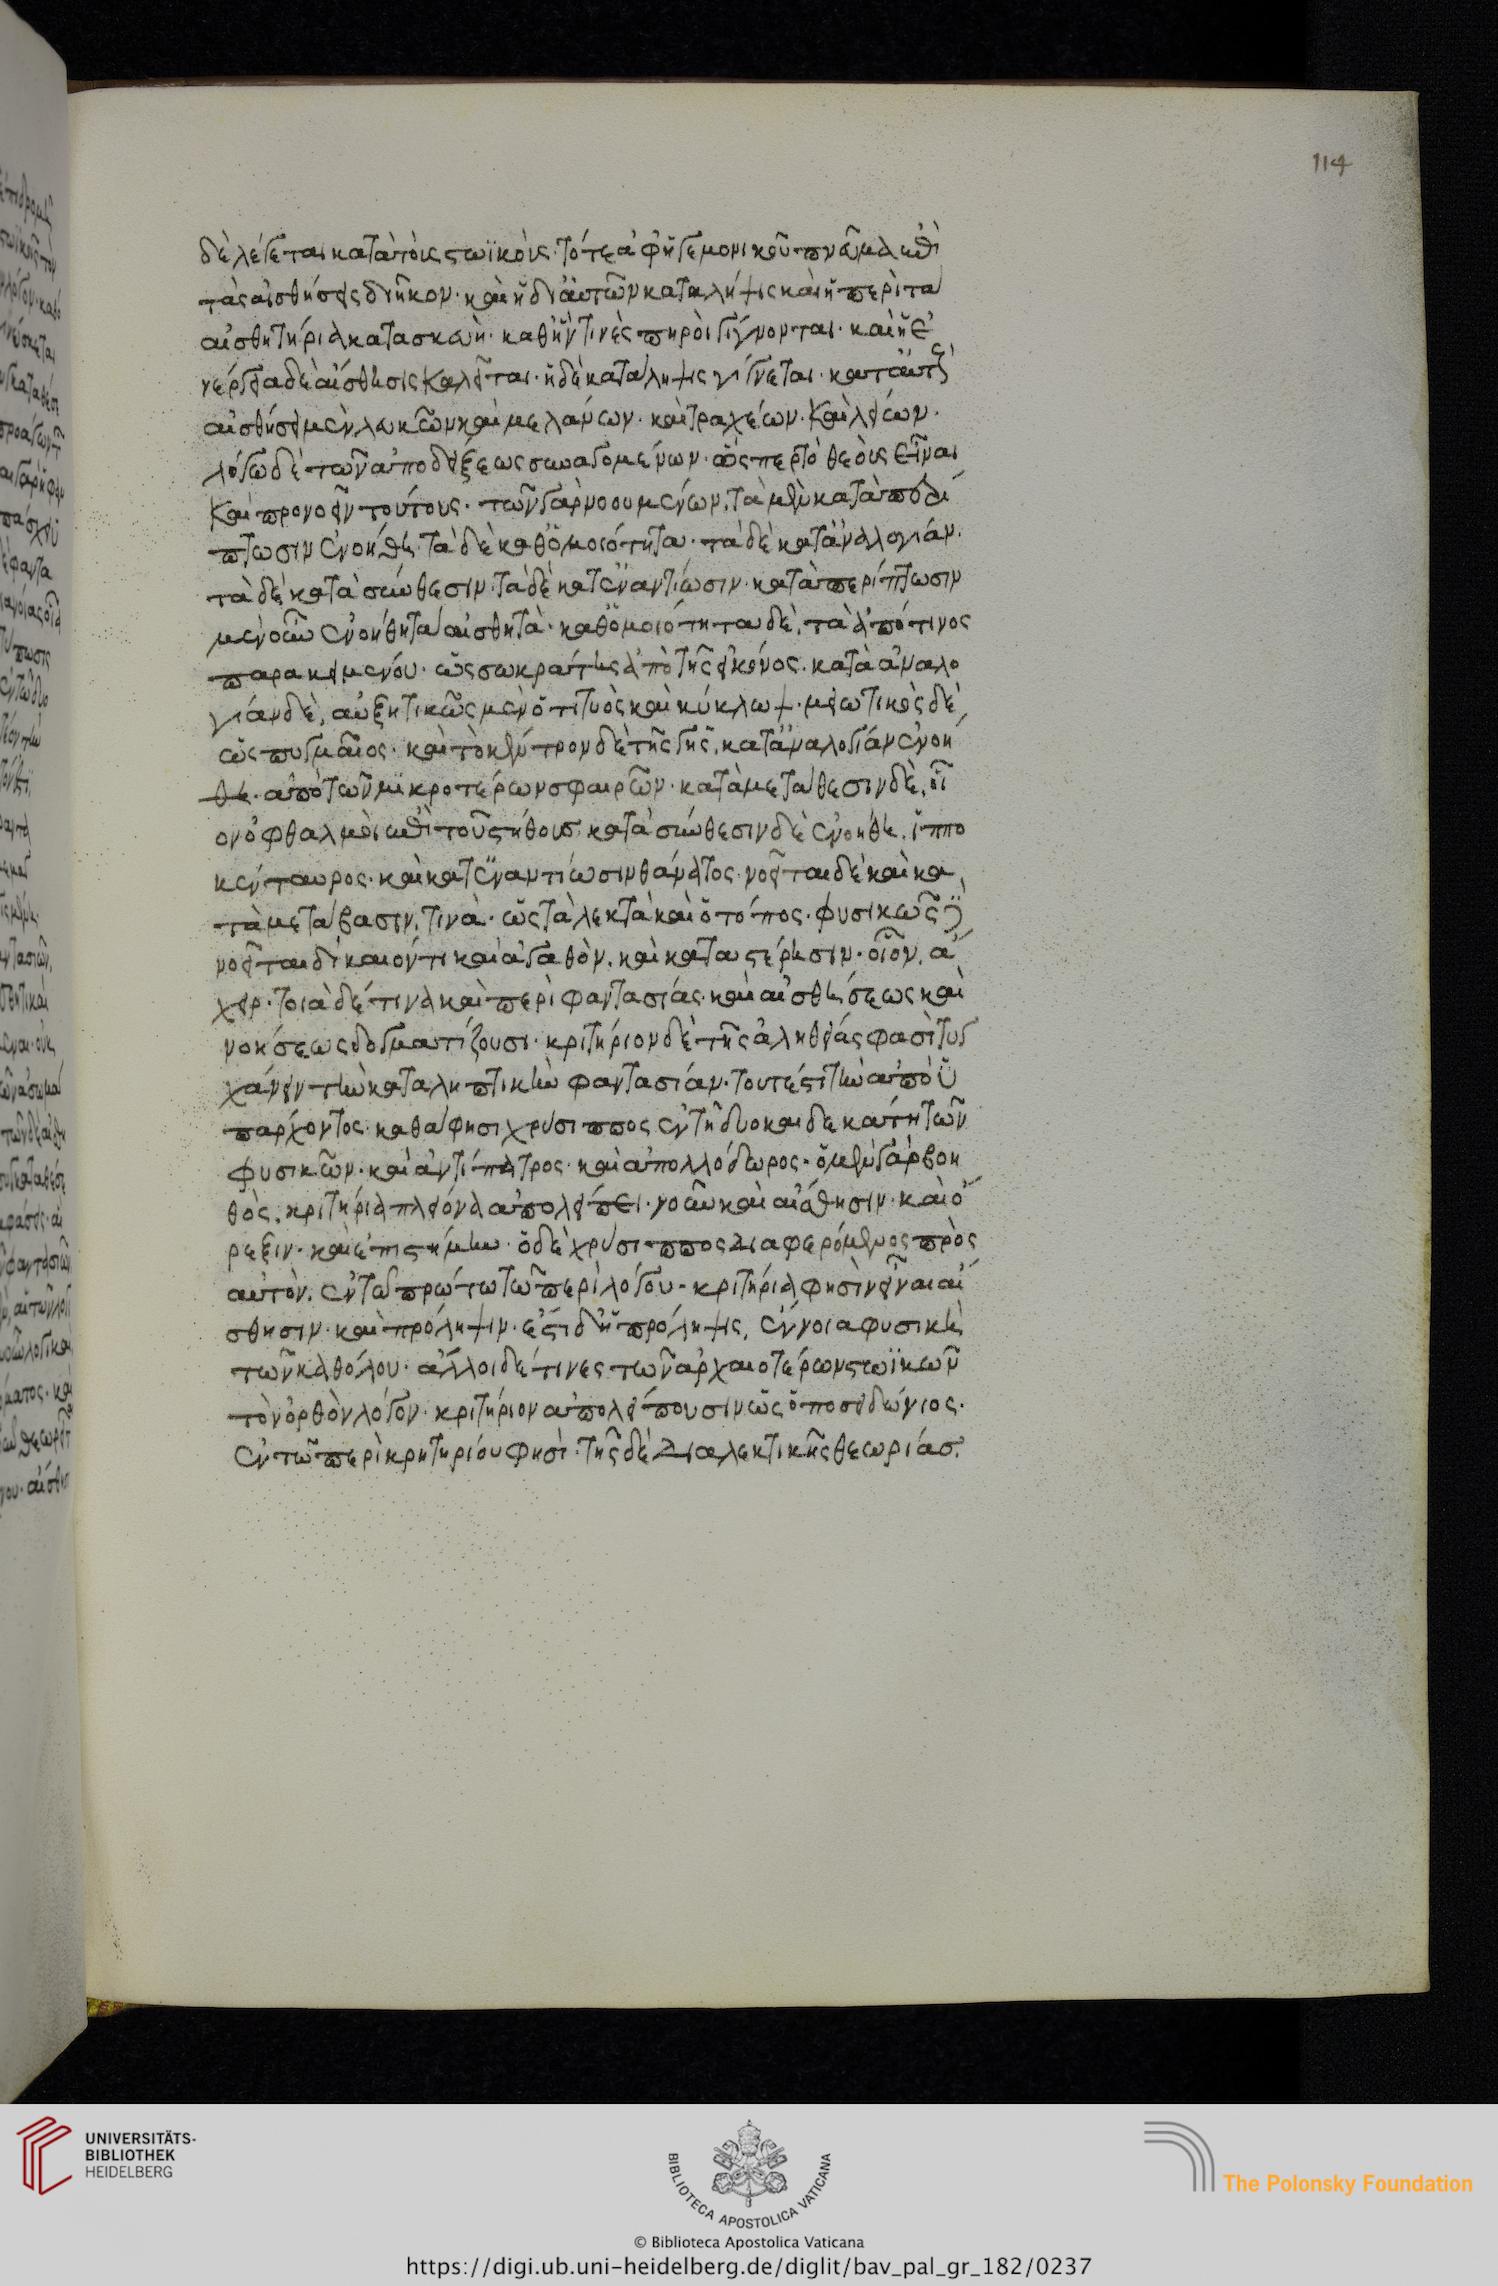 114
δὲ λέγεται κατὰ τοὺς στωϊκοὺς· τό τε ἀφ' ἡγεμονικοῦ πνεῦμα ἐπὶ
τὰς αἰσθήσεις διῆκον· καὶ ἡ δι αὐτῶν κατάληψις καὶ ἡ περὶ τὰ
αἰσθητήρια κατασκευὴ· καθ' ἥν τινὲς πηροὶ γίγνονται· καὶ ἡ ἐ
νέργεια δὲ αἴσθησις καλεῖται· ἡ δὲ κατάληψις γίγνεται· κατ αὐτοὺς
αἰσθήσει μὲν λευκῶν καὶ μελάνων· καὶ τραχείων· καὶ λείων·
λόγω δὲ τῶν ἀποδείξεως συναγομένων· ὥσπερ τὸ θεοὺς εἶναι
καὶ προνοεῖν τούτους· τῶν γὰρ νοουμένων, τὰ μὲν κατὰ περί
πτωσιν ἐνοήθη· τὰ δὲ καθ' ὁμοιότητα· τὰ δὲ κατ ἀναλογίαν·
τὰ δὲ κατὰ σύνθεσιν· τὰ δὲ κατ ἐναντίωσιν· κατὰ περίπτωσιν
μὲν οὖν ἐνοήθη τὰ αἰσθητὰ· καθ' ὁμοιότητα δὲ, τὰ ἀπό τινος
παρακειμένου· ὡς σωκράτης ἀπὸ τῆς εἰκόνος· κατὰ ἀναλο
γίαν δὲ, αὐξητικῶς μὲν ὁ τιτυὸς καὶ κύκλωψ· μειωτικὸς δὲ
ὡς πυγμαῖος· καὶ τὸ κέντρον δὲ τῆς γῆς, κατ ἀναλογίαν ἐνοή
θη· ἀπὸ τῶν μικροτέρων σφαιρῶν· κατὰ μετάθεσιν δὲ, οἷ
ον ὀφθαλμοὶ ἐπὶ τοῦ στήθους· κατὰ σύνθεσιν δὲ ἐνοήθη, ἱππο
κένταυρος· καὶ κατ ἐναντίωσιν θάνατος· νοεῖται δὲ καὶ κα
τὰ μετάβασιν, τινὰ· ὡς τὰ λεκτὰ καὶ ὁ τόπος· φυσικῶς δὲ
νοεῖται δίκαιόν τι καὶ ἀγαθὸν, καὶ κατὰ στέρησιν· οἷον, ἄ
χειρ· τοιάδέ τινα καὶ περὶ φαντασίας· καὶ αἰσθήσεως καὶ
νοήσεως δογματίζουσι· κριτήριον δὲ τῆς ἀληθείας φασὶ τυγ
χάνειν τὴν καταληπτικὴν φαντασίαν· τουτέστι τὴν ἀπὸ ὑ
πάρχοντος· καθά φησι χρύσιππος ἐν τῆ δυοκαιδεκάτη τῶν
φυσικῶν· καὶ ἀντίπατρος· καὶ ἀπολλόδωρος· ὁ μὲν γὰρ βοη
θὸς, κριτήρια πλείονα ἀπολείπει· νοῦν καὶ αἴσθησιν· καὶ ὄ
ρεξιν· καὶ ἐπιστήμην· ὁ δὲ χρύσιππος διαφερόμενος πρὸς
αὐτὸν, ἐν τῶ πρώτω τῶν περὶ λόγου· κριτήρια φησὶν εἶναι αἴ
σθησιν· καὶ πρόληψιν· ἔστι δ' ἡ πρόληψις, ἔννοια φυσικὴ
τῶν καθόλου· ἄλλοι δέ τινες τῶν ἀρχαιοτέρων στωϊκῶν
τὸν ὀρθὸν λόγον· κριτήριον ἀπολείπουσιν ὡς ὁ ποσειδώνιος·
ἐν τῶ περὶ κρητηρίου φησὶ· τῆς δὲ διαλεκτικῆς θεωρίας·
UNIVERSITÄTS-
BIBLIOTHEK
HEIDELBERG
BIBLIOTECA APOSTOLICA VATICANA
© Biblioteca Apostolica Vaticana
The Polonsky Foundation
https://digi.ub.uni-heidelberg.de/diglit/bav_pal_gr_182/0237